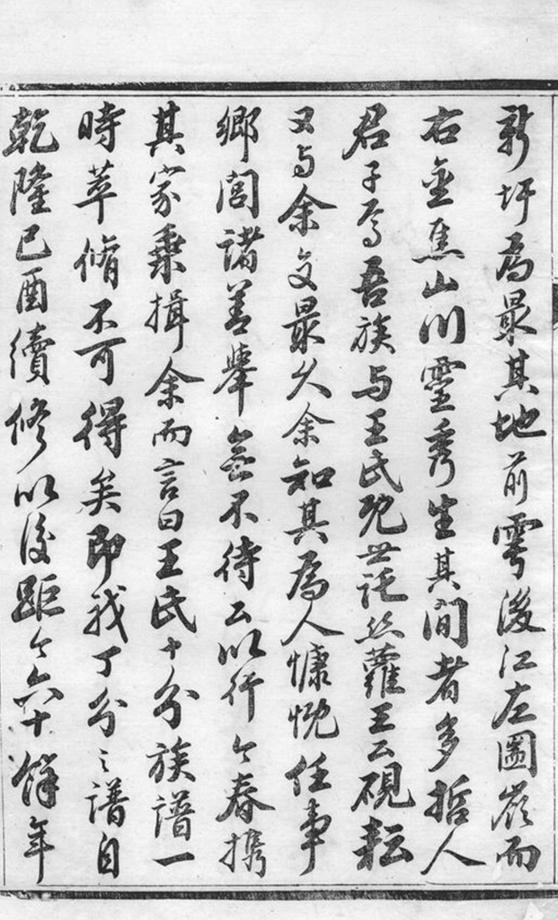 新圩為最其地前雩後江左圖嶺而
右金焦山川靈秀生其間者多哲人
君子焉吾族与王氏既世託丝蘿王公硯耘
又与余交最久余知其為人慷慨任事
鄉閭諸善舉無不待公以行今春携
其家乗揖余而言曰王氏十分族譜一
時萃脩不可得矣即我丁分之譜自
乾隆己酉續修以後距今六十餘年